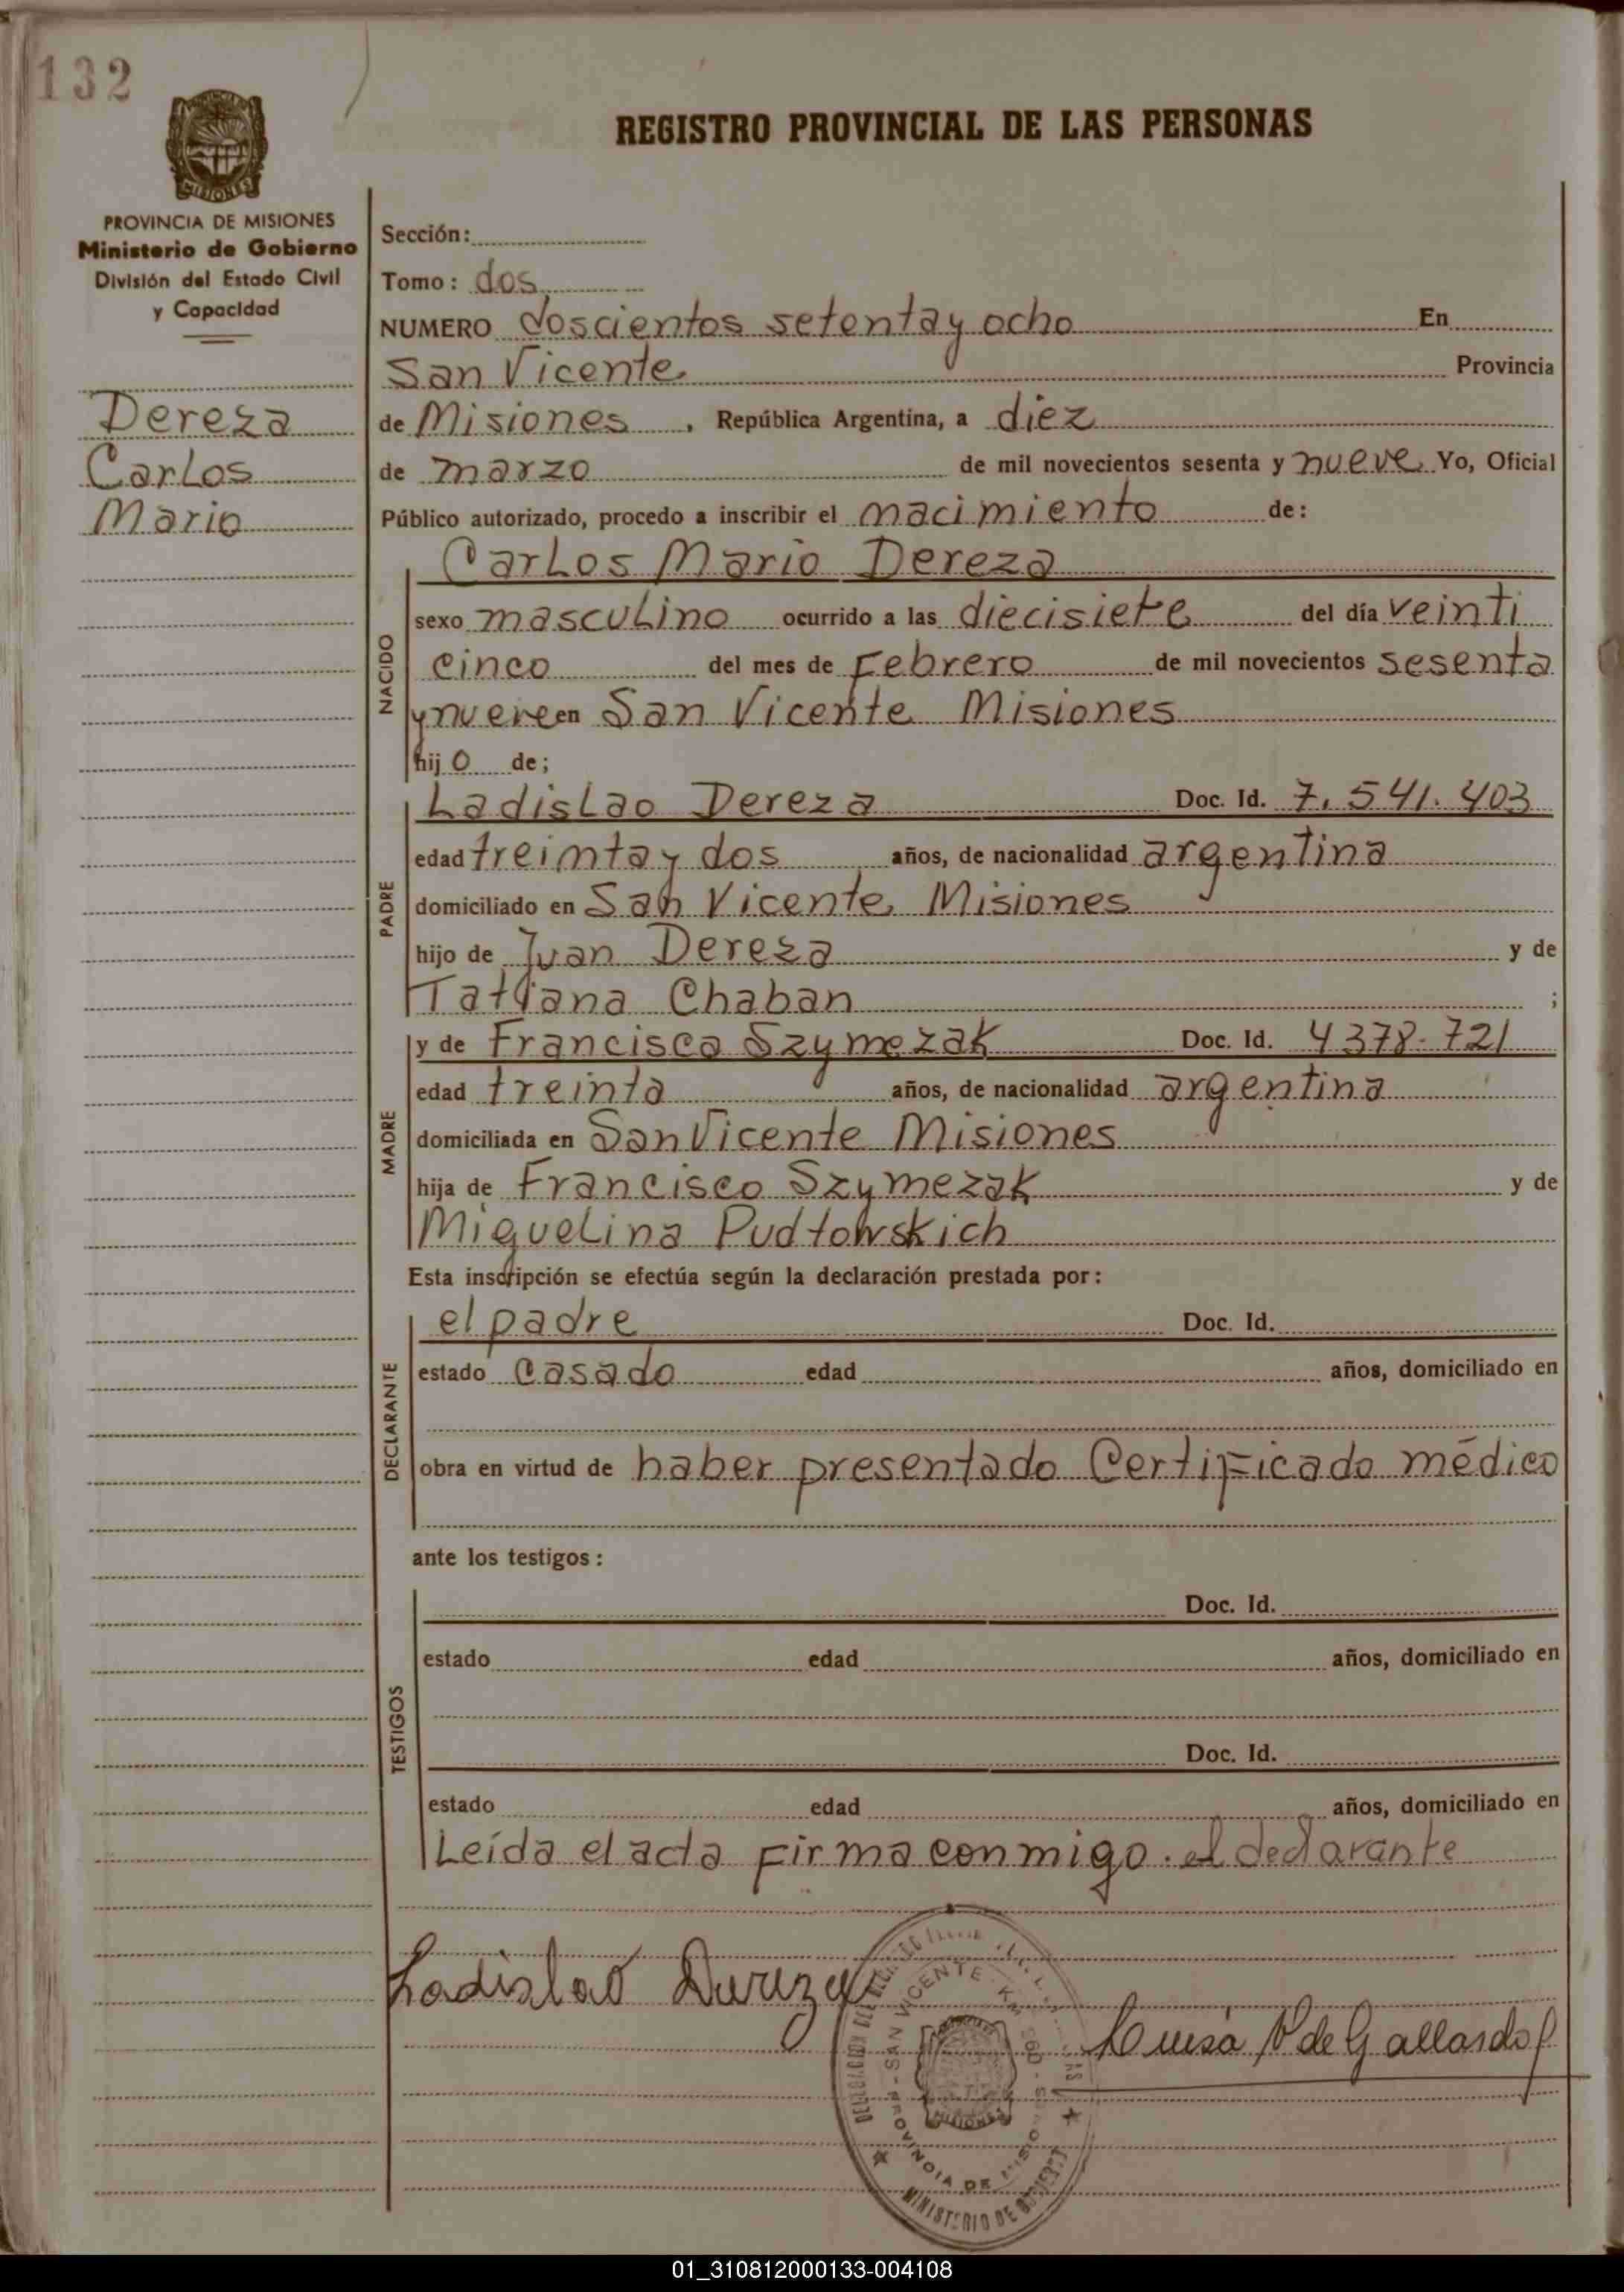 132
REGISTRO PROVINCIAL DE LAS PERSONAS
PROVINCIA DE MISIONES
Ministerio de Gobierno
División del Estado Civil
y Capacidad
Dereza
Carlos
Mario
Sección:
Tomo: dos
NUMERO doscientos setenta y ocho En
San Vicente Provincia
de Misiones, República Argentina, a diez
de marzo de mil novecientos sesenta y nueve Yo, Oficial
Público autorizado, procedo a inscribir el nacimiento de:
NACIDO
Carlos Mario Dereza
sexo masculino ocurrido a las diecisiete del día veinti
cinco del mes de Febrero de mil novecientos sesenta
y nueve en San Vicente Misiones
hijo de;
PADRE
Ladislao Dereza Doc. Id. 7.541.403
edad treinta y dos años, de nacionalidad argentina
domiciliado en San Vicente Misiones
hijo de Juan Dereza y de
Tatiana Chaban ;
MADRE
y de Francisca Szymezak Doc. Id. 4378.721
edad treinta años, de nacionalidad argentina
domiciliada en San Vicente Misiones
hija de Francisco Szymezak y de
Miguelina Pudtowskich
Esta inscripción se efectúa según la declaración prestada por:
DECLARANTE
el padre Doc. Id.
estado Casado edad años, domiciliado en
obra en virtud de haber presentado Certificado médico
ante los testigos:
TESTIGOS
Doc. Id.
estado edad años, domiciliado en
Doc. Id.
estado edad años, domiciliado en
Leída el acta firma conmigo. el declarante
Ladislao Dereza
Luisa de Gallardo
SAN VICENTE
PROVINCIA DE MISIONES
MISIONES
MINISTERIO DE GOBIERNO
01_310812000133-004108